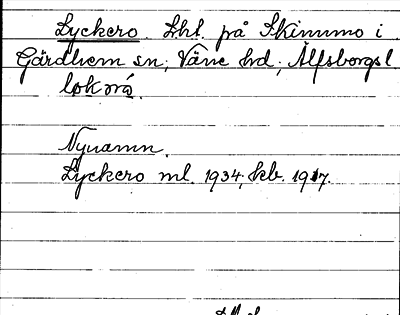 Lyckero. Lht. på Skinnmo i
Gärdhem sn; Väne hd; Älfsborgs l.
lok
Nynamn.
Lyckero ml. 1934, kb. 1917.